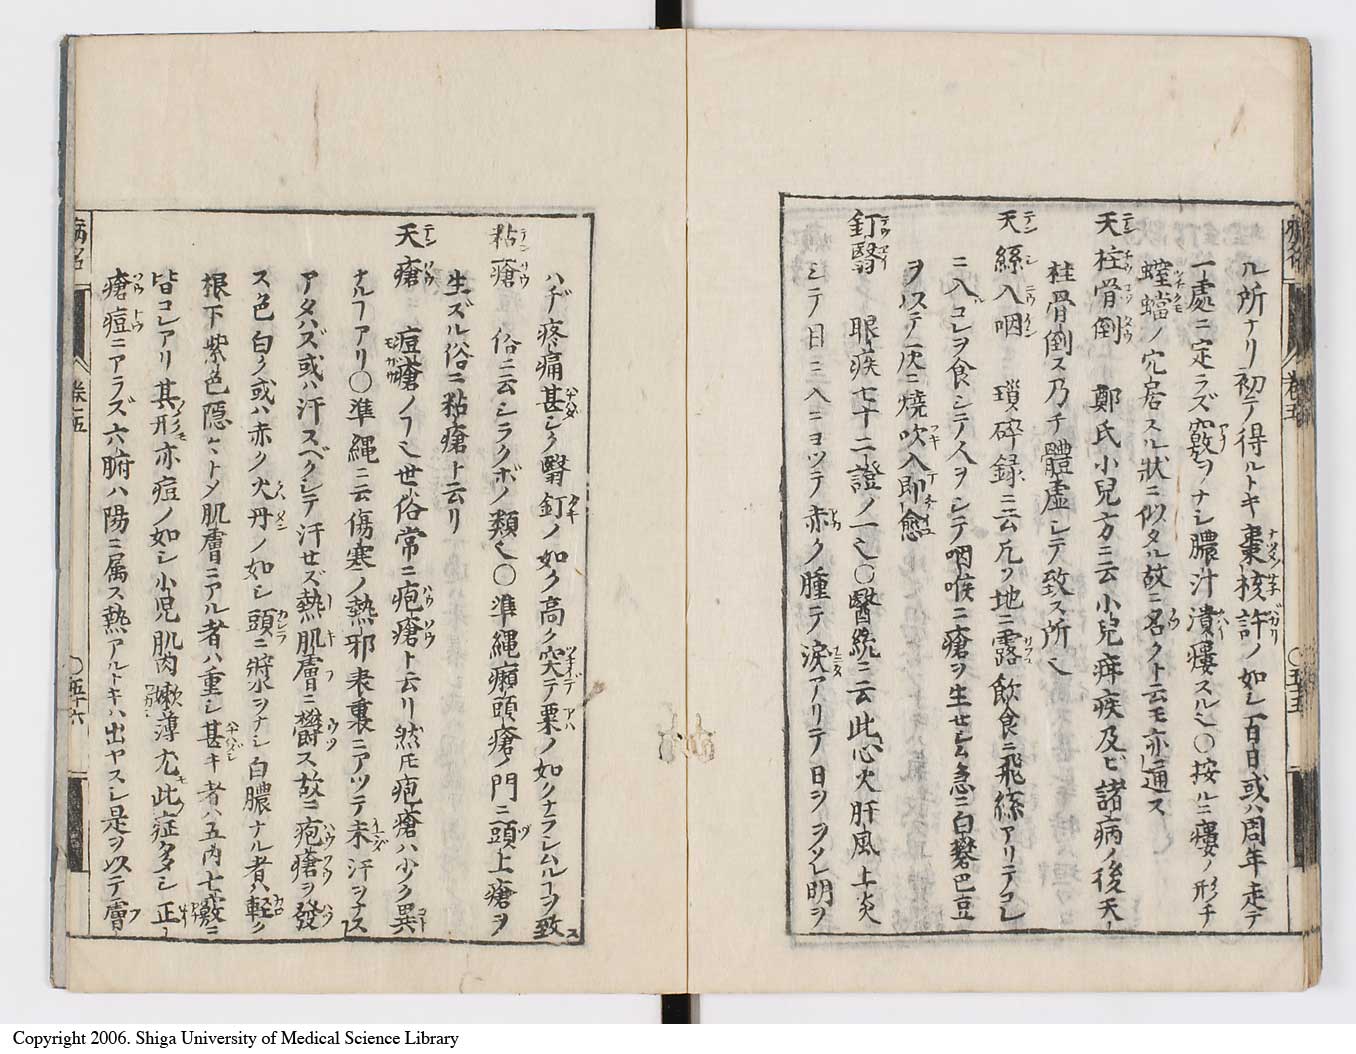 ル所ナリ初テ得ルトキ棗核許ノ如シ百日或ハ周年走テ
一處ニ定ラズ竅ヲナシ膿汁潰瘻スル也〇按ルニ瘻ノ形チ
螳蟷ノ穴居スル状ニ似タル故ニ名クト云モ亦通ス
天柱骨倒 鄭氏小兒方ニ云小兒疳疾及ビ諸病ノ後天
柱骨倒ス乃チ體虚シテ致ス所也
天絲入咽 瑣碎録ニ云凡ソ地ニ露飲食ニ飛絲アリテコレ
ニ入コレヲ食シテ人ヲシテ咽喉ニ瘡ヲ生セシム急ニ白礬巴豆
ヲ以テ灰ニ燒吹入即愈
釘翳 眼疾七十二證ノ一也〇醫統ニ云此心火肝風上炎
シテ目ニ入ニヨツテ赤ク腫テ淚アリテ日ヲヲソレ明ヲ
卷五
〇五十五
ハヂ疼痛甚シク翳釘ノ如ク高ク突テ粟ノ如クナラシムルヿヲ致ス
粘瘡 俗ニ云シラクボノ類也〇準縄癩頭瘡ノ門ニ頭上瘡ヲ
生ズル俗ニ粘瘡ト云リ
天瘡 痘瘡ノヿ也世俗常ニ疱瘡ト云リ然𪜈疱瘡ハ少ク異
ナルヿアリ〇準縄ニ云傷寒ノ熱邪表裏ニアツテ未汗ヲナス
アタハズ或ハ汗スベクシテ汗せズ熱肌膚ニ欝ス故ニ疱瘡ヲ發
ス色白ク或ハ赤ク火丹ノ如シ頭ニ漿水ヲナシ白膿ナル者ハ軽ク
根下紫色隠々トメ肌膚ニアル者ハ重シ甚キ者ハ五内七竅ニ
皆コレアリ其形亦痘ノ如シ小児肌肉嫩薄尤此症多シ正
瘡痘ニアラズ六腑ハ陽ニ属ス熱アルトキハ出ヤスシ是ヲ以テ膚
病名
卷五
〇五十六
Copyright 2006. Shiga University of Medical Science Library